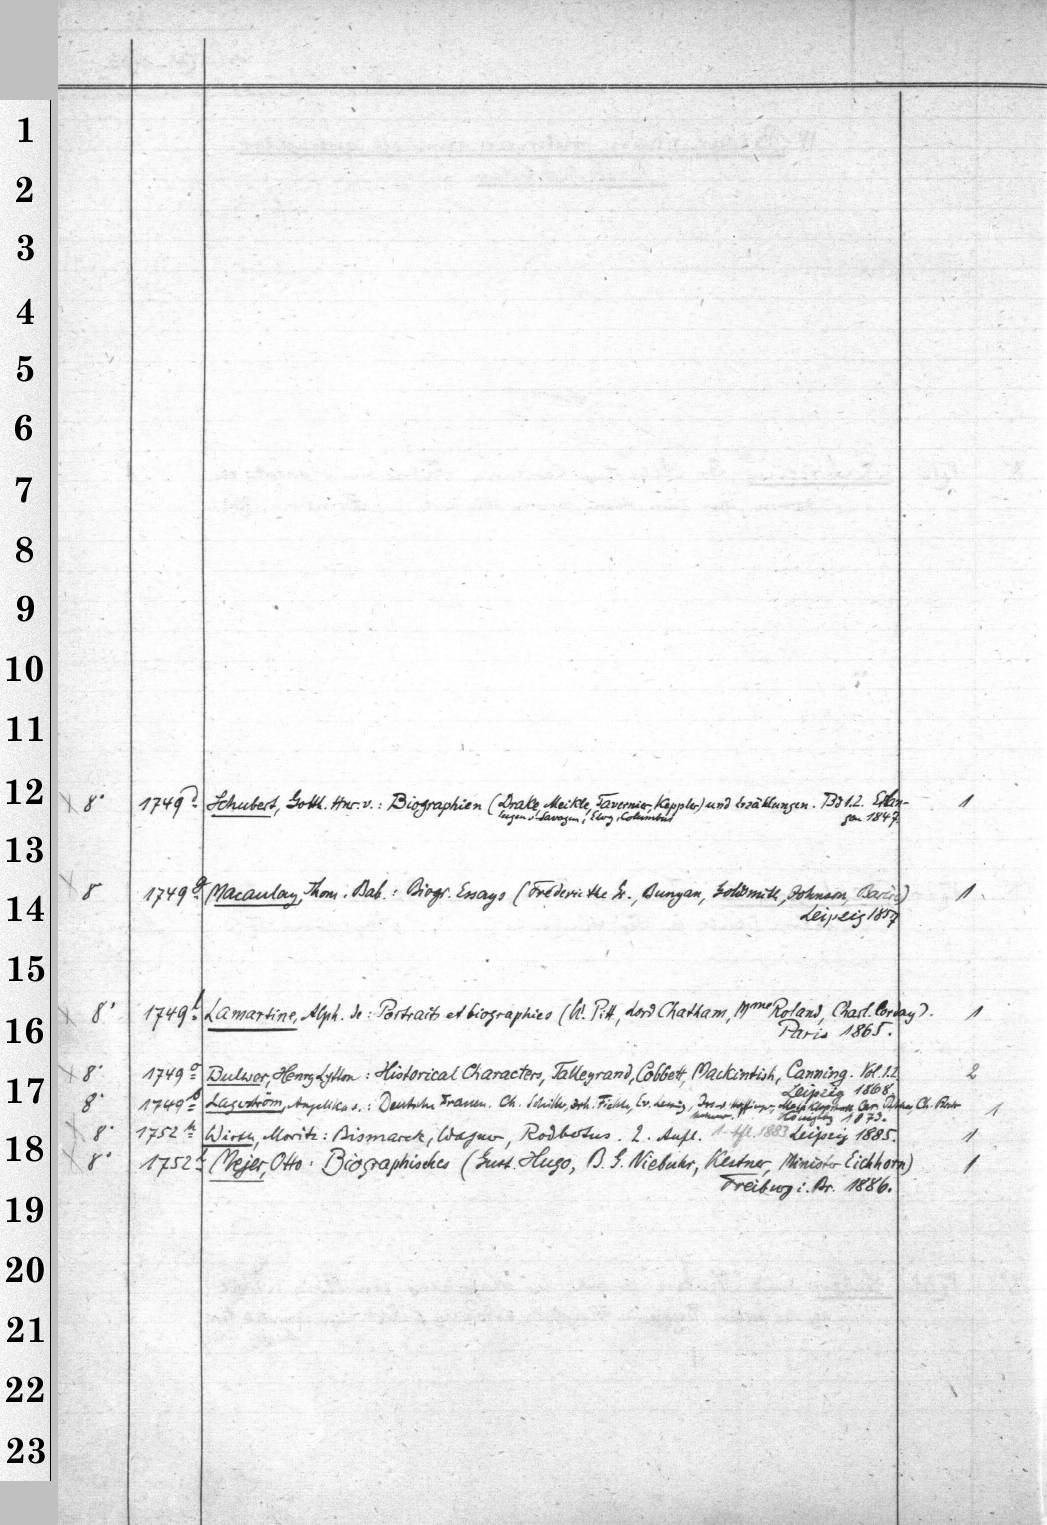 1
2
3
4
5
6
7
8
9
10
11
12
13
14
15
16
17
18
19
20
21
22
23
8° 1749 Schubert, Gotth. Hnr. v.: Biographien (Drake, Meikle, Tavernier, Keppler) und Erzählungen. Bd 1.2. Erlan- 1
Eugen v. Savoyen, Columbus gen 1847.
8 1749 g Macaulay, Thom. Bab.: Biogr. Essays (Frederic the Gr., Bunyan, Goldsmith, Johnson, Barère) 1
Leipzig 1857
8° 1749 l Lamartine, Alph. de: Portraits et biographies (W. Pitt, Lord Chatham, Mme Roland, Charl. Corday). 1
Paris 1865.
8° 1749 o Bulwer, Henry Lytton: Historical Characters, Talleyrand, Cobbett, Mackintosh, Canning. Vol. 1.2. 2
Leipzig 1868.
8° 1749 p Lagerström, Angelika v.: Deutsche Frauen. Ch. Schiller, Joh. Fichte, 1
1873.
8° 1752 Wirth, Moritz: Bismarck, Wagner, Rodbertus. 2. Aufl. 1. Afl. 1883 Leipzig 1885. 1
8° 1752 Mejer, Otto: Biographisches (Gust. Hugo, B. G. Niebuhr, Kestner, Minister Eichhorn) 1
Freiburg i. Br. 1886.